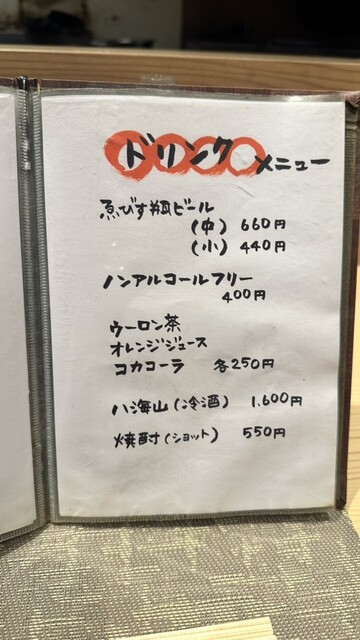 ドリンクメニュー
ゑびす瓶ビール
(中) 660円
(小) 440円
ノンアルコールフリー
400円
ウーロン茶
オレンジジュース
コカコーラ 各250円
八海山(冷酒) 1.600円
焼酎(ショット) 550円